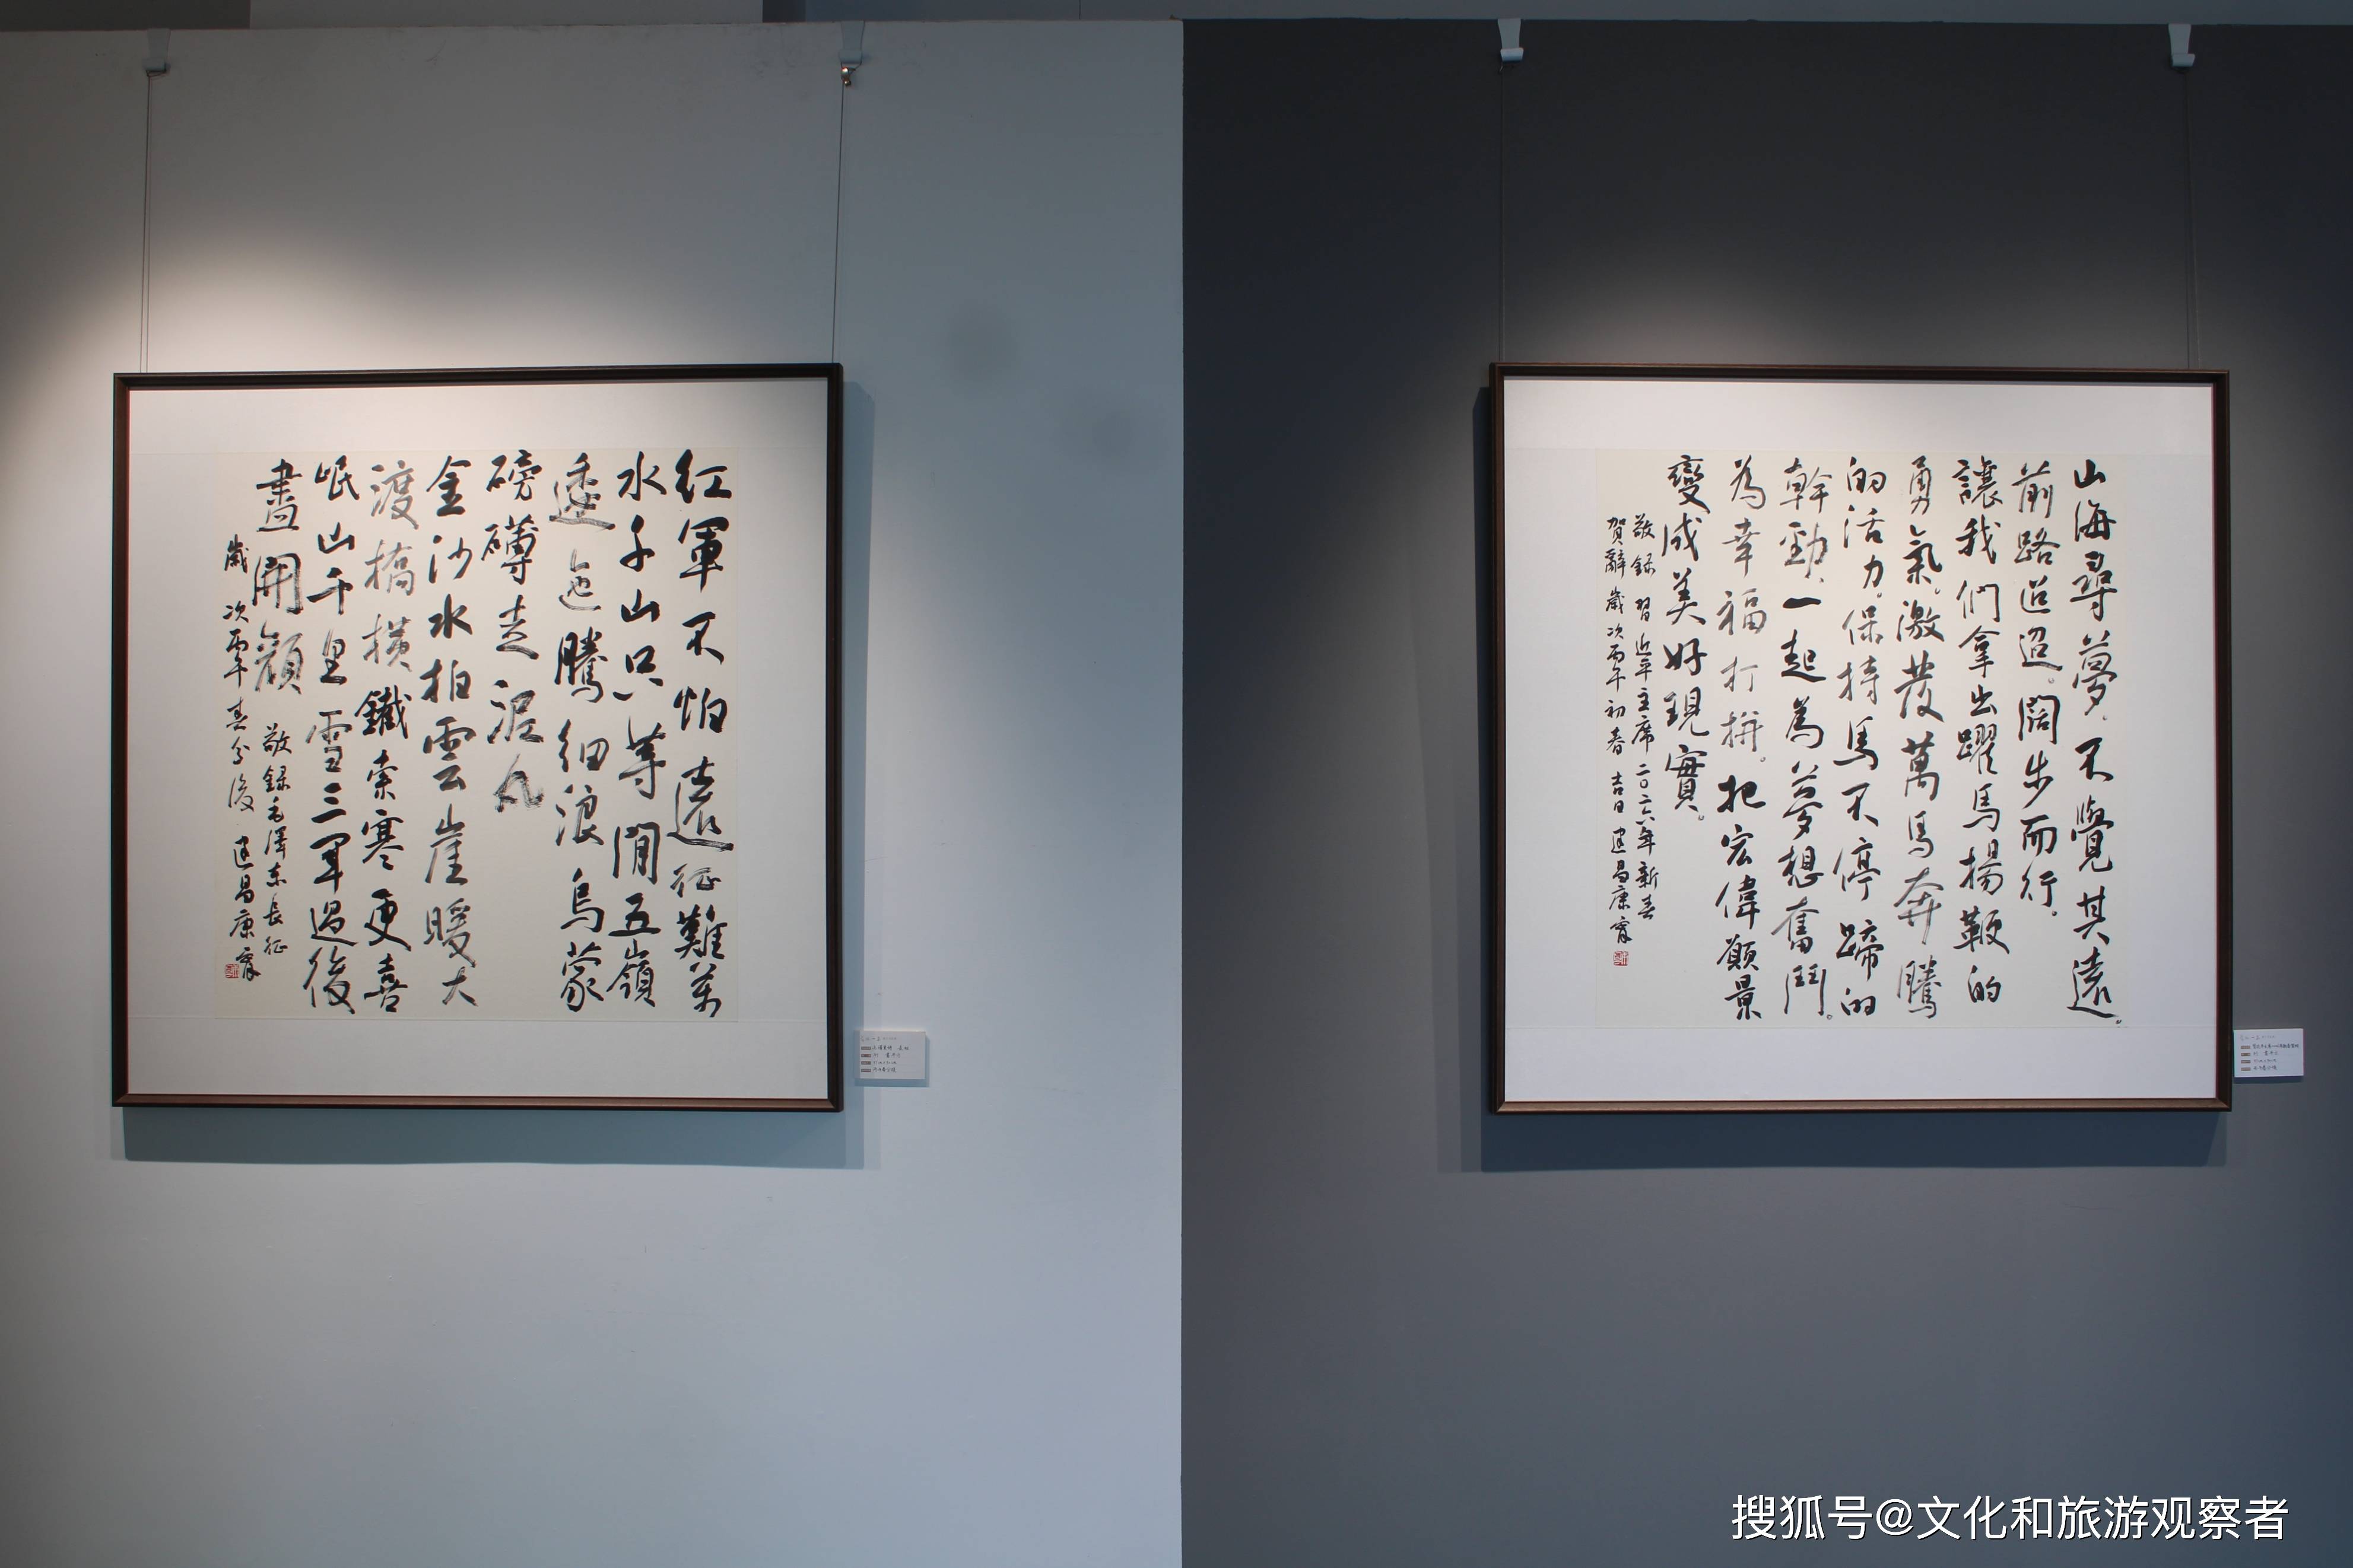 紅軍不怕遠征難萬
水千山只等閒五嶺
逶迤騰細浪烏蒙
磅礴走泥丸
金沙水拍雲崖暖大
渡橋橫鐵索寒更喜
岷山千里雪三軍過後
盡開顏
敬録毛澤東長征
歲次丙午春分後 建昌康寧
山海尋夢,不覺其遠,
前路迢迢。闊步而行。
讓我們拿出躍馬揚鞭的
勇氣。激發萬馬奔騰
的活力。保持馬不停蹄的
幹勁、一起為夢想奮鬥。
為幸福打拼。把宏偉願景
變成美好現實。
敬録習近平主席二〇二六年新春
賀辭歲次丙午初春 吉日 建昌康寧
搜狐号@文化和旅游观察者